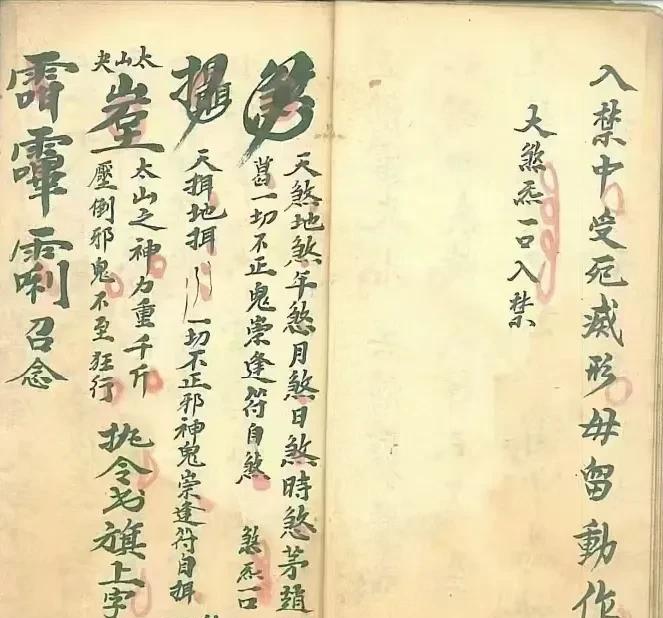 入禁中受死滅形毋留動作
大煞炁一口入禁
煞
天煞地煞年煞月煞日煞時煞茅
一切不正鬼祟逢符自煞 煞炁一口
攝
天揖地揖 一切不正邪神鬼祟逢符自揖
太山夫
太山之神力重千斤
壓倒邪鬼不至狂行
批令书旗上字
召念